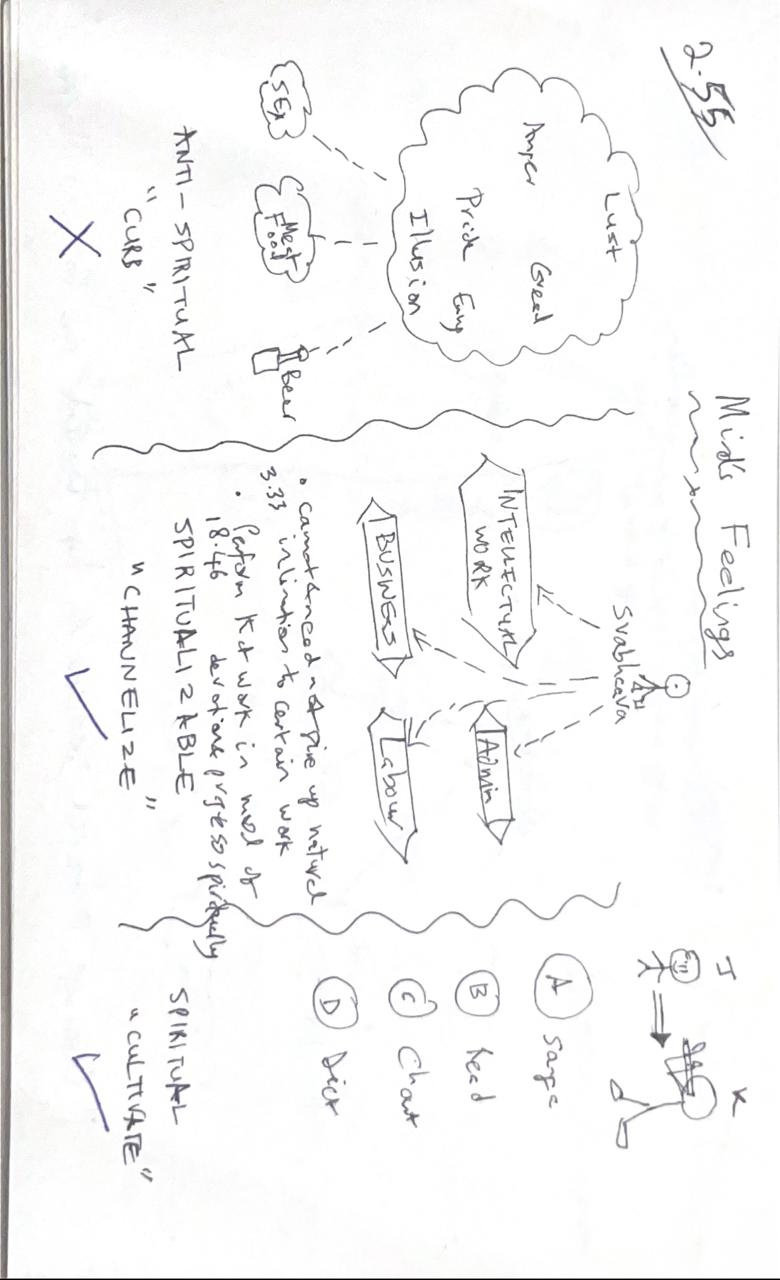 2.55
Mind's Feelings
Lust
Anger
Greed
Pride
Envy
Illusion
SEX
Meat
Food
Beer
ANTI-SPIRITUAL
"CURB"
Svabhaava
INTELLECTUAL
WORK
Admin
BUSINESS
Labour
• Cannot & need not give up natural
3.33 inclinations to certain work
• Perform that work in mood of
18.46 devotion & progress spiritually
SPIRITUALIZABLE
"CHANNELIZE"
J
K
A Sanga
B Read
C Chant
D Diet
SPIRITUAL
"CULTIVATE"